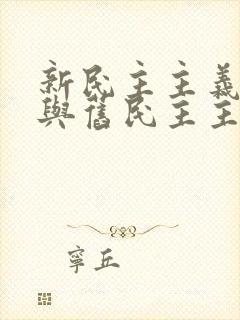 新民主主義
與舊民主主
寧丘